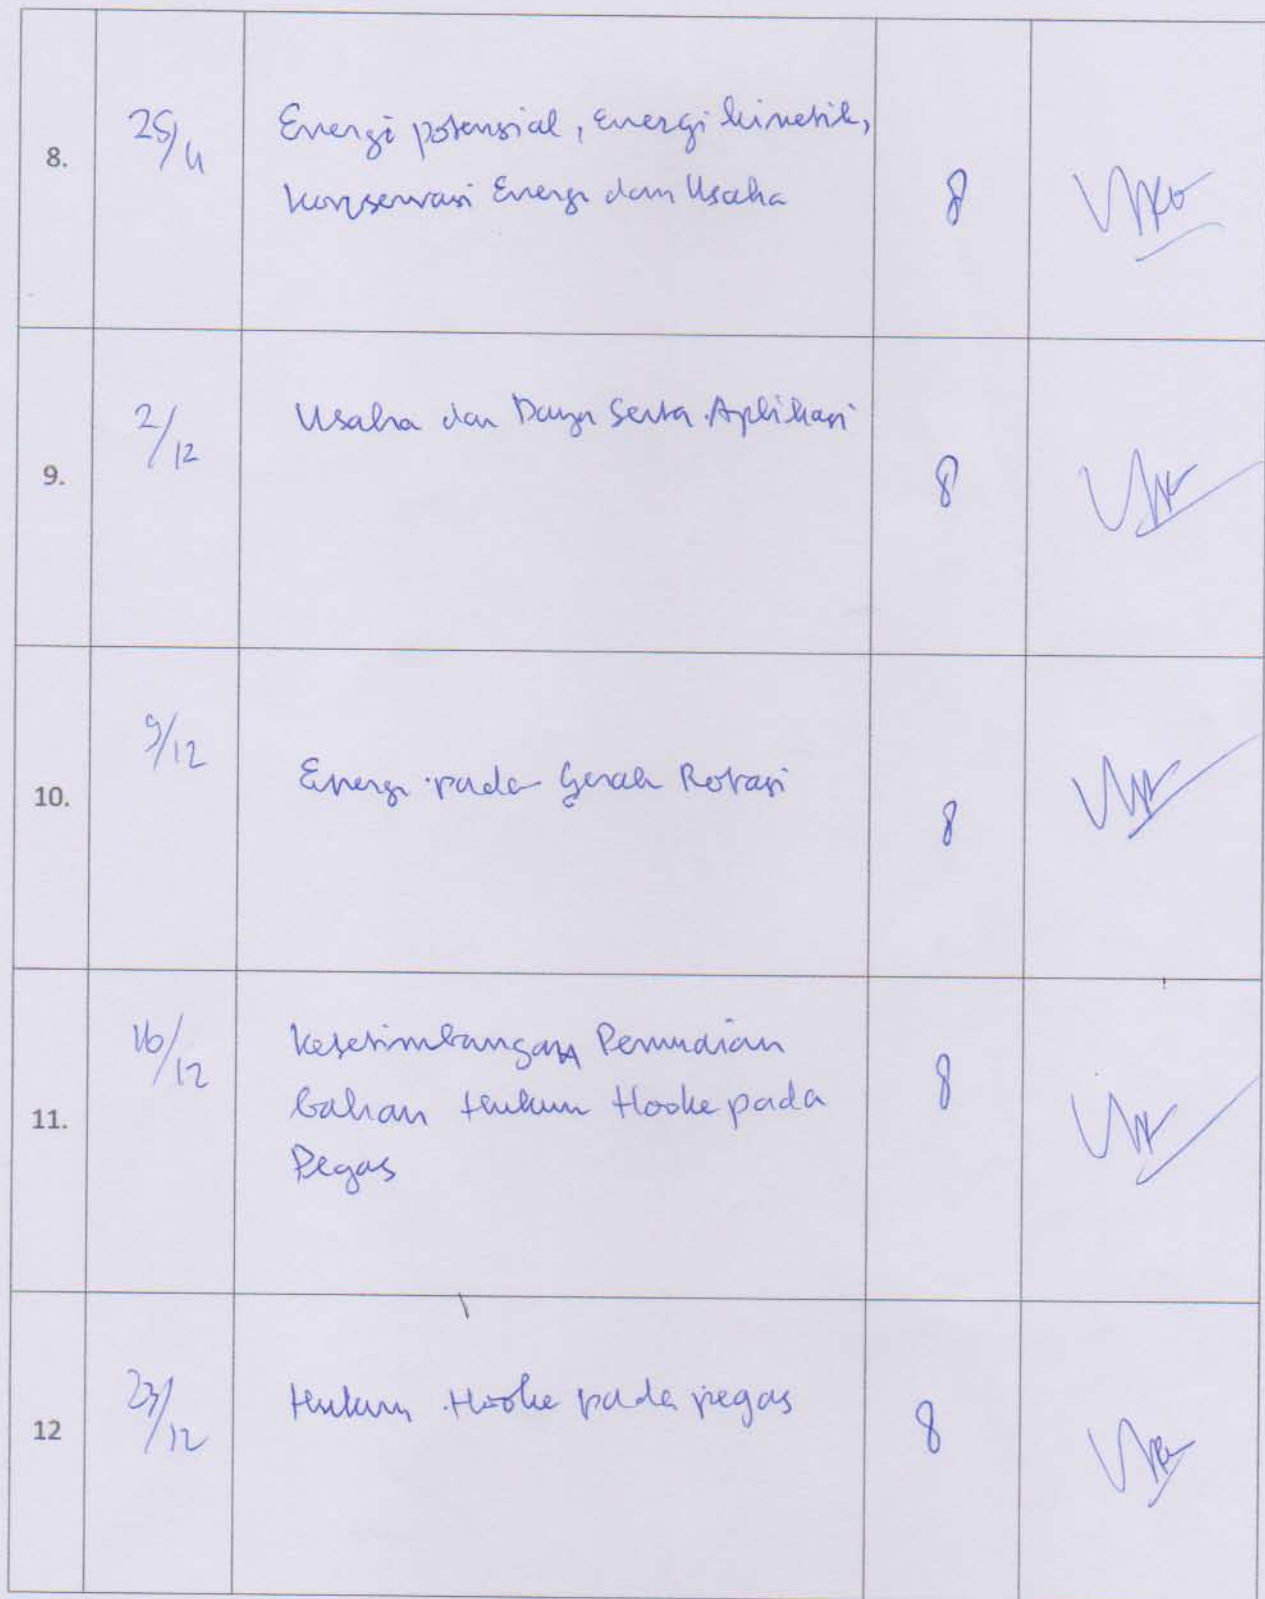 8.
25/11
Energi potensial, Energi kinetik,
konservasi Energi dan Usaha
8
9.
2/12
Usaha dan Daya Serta Aplikasi
8
10.
9/12
Energi pada Gerak Rotasi
8
11.
16/12
Kesetimbangan Pemudian
bahan Hukum Hooke pada
Pegas
8
12
23/12
Hukum Hooke pada pegas
8